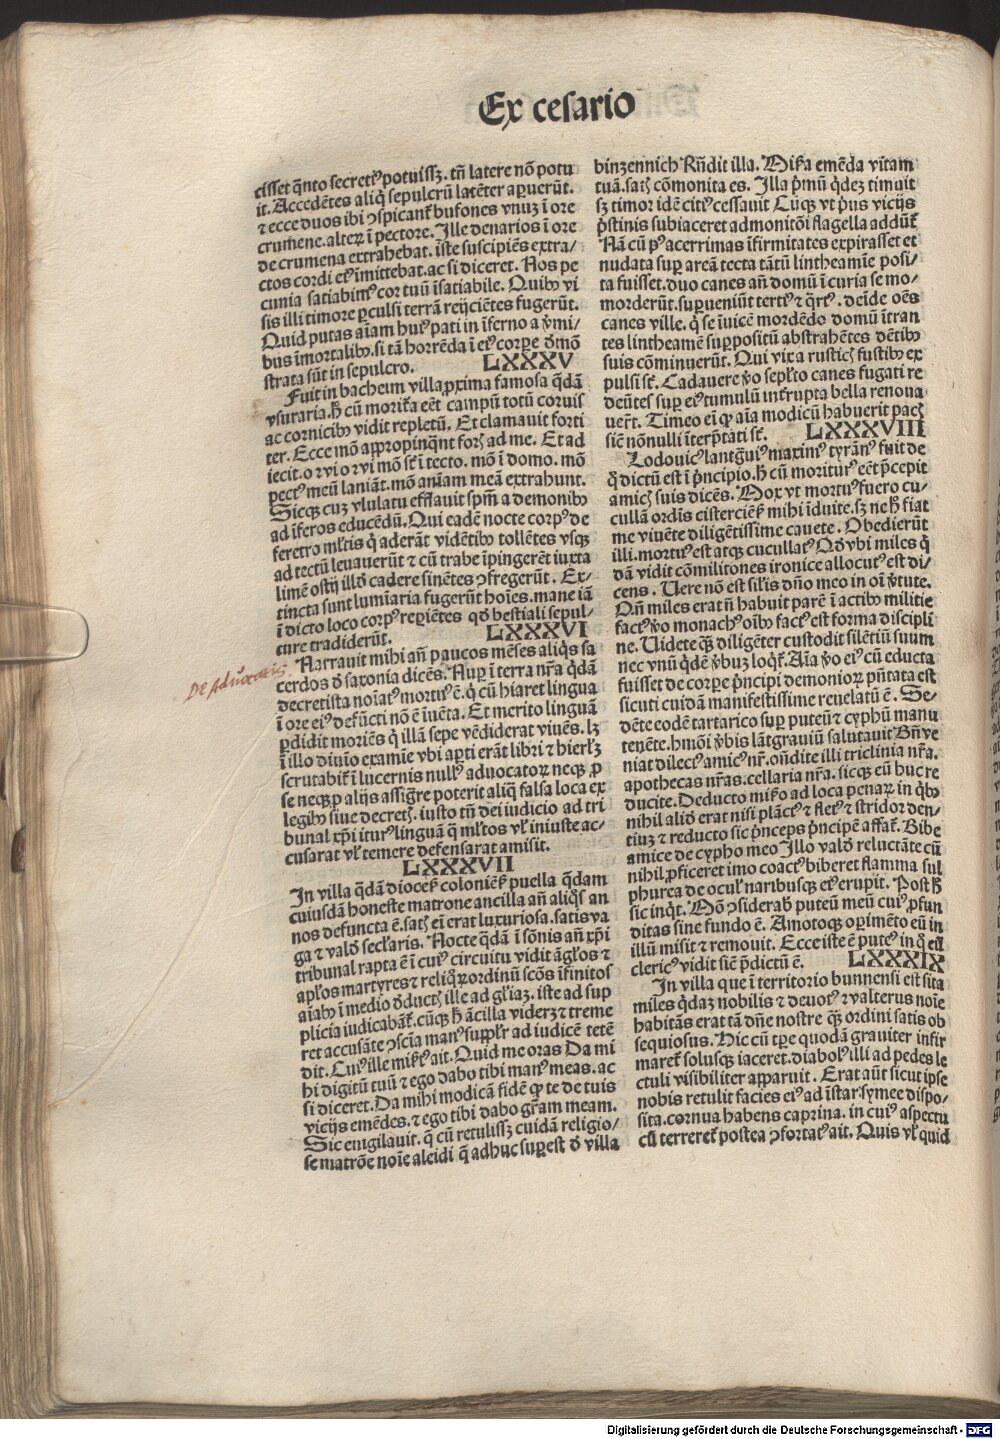 Ex cesario
cisset q̄nto secreti⁹ potuissꝫ. tn̄ latere nō potu
it. Accedētes aliq̄ sepulcrū latēter aꝑuerūt.
⁊ ecce duos ibi ꝯspicant̄ bufones vnuꝫ ī ore
crumene. alterꝫ ī pectore. Ille denarios ī ore
de crumena extrahebat. iste suscipiēs extra/
ctos cordi ei⁹ īmittebat. ac si diceret. Nos pe
cunia satiabim⁹ cor tuū īsatiabile. Quibꝰ vi
sis illi timore ꝑculsi terrā reijciētes fugerūt.
Quid putas aīam hui⁹ pati in īferno a v̄mi/
bus īmortalibꝰ. si tā horrēda ī ei⁹ corꝑe dm̄ō
strata sūt in sepulcro. LXXXV
Fuit in bacheim villa ꝓxima famosa q̄dā
vsuraria. h̄ cū morit̄a eēt campū totū coruis
ac cornicibꝰ vidit repletū. Et clamauit forti
ter. Ecce mō appropinq̄nt forꝭ ad me. Et ad
iecit. o vi o vi mō st̄ ī tecto. mō ī domo. mō
pect⁹ meū laniāt. mō aniam meā extrahunt.
Sicqꝫ cuꝫ vlulatu efflauit spm̄ a demonibꝰ
ad īferos educēdū. Qui eadē nocte corp⁹ de
feretro ml̄tis q̄ aderāt vidētibꝰ tollētes vsqꝫ
ad tectū leuauerūt ⁊ cū trabe īpingerēt iuxta
limē ostij illd̄ cadere sinētes ꝯfregerūt. Ex/
tincta sunt lumīaria fugerūt hoīes. mane iā
ī dicto loco corp⁹ reꝑiētes qd̄ bestiali sepul/
ture tradiderūt. LXXXVI
Narrauit mihi añ paucos mēses aliq̄s sa
cerdos d̄ saxonia dicēs. Nuꝑ ī terra nr̄a q̄dā
decretista noīat⁹ mortu⁹ ē. q̄ cū hiaret lingua
ī ore ei⁹ defūcti nō ē īuēta. Et merito linguā
ꝑdidit moriēs q̄ illā sepe vēdiderat viuēs. lꝫ
ī illo diuio examīe vbi aꝑti erāt libri ⁊ hierlꝫ
scrutabit̄ ī lucernis null⁹ aduocatoꝝ neqꝫ ꝓ
se neqꝫ ꝓ alijs assig̅re poterit aliq̄ falsa loca ex
legibꝰ siue decretꝭ. iusto tn̄ dei iudicio ad tri
bunal xp̄i itur⁹ linguā q̄ ml̄tos vl̓ iniuste ac/
cusarat vl̓ temere defensarat amisit.
LXXXVII
In villa q̄dā diocef̄ colonieñ puella q̄dam
cuiusdā honeste matrone ancilla añ aliq̄s an
nos defuncta ē. satꝭ ei̅ erat luxuriosa. satis va
ga ⁊ vald̄ secl̓aris. Nocte q̄dā ī sōnis añ xp̄i
tribunal rapta ē ī cui⁹ circuitu vidit āgl̓os ⁊
apl̓os martyres ⁊ reliq̄ꝝ ordinū scōs īfinitos
aīabꝰ ī medio dductꝭ ille ad gl̓iaꝫ. iste ad sup
plicia iudicabāt̄. cūqꝫ h̄ ācilla viderꝫ ⁊ treme
ret accusāte ꝯscīa man⁹ suppl̓r ad iudicē tetē
dit. Cui⁹ ille mik̄⁹ ait. Quid me oras Da mi
hi digitū tuū ⁊ ego dabo tibi man⁹ meas. ac
si diceret. Da mihi modicā fidē ꝙ te de tuis
vicijs emēdes. ⁊ ego tibi dabo gr̄am meam.
Sic euigilauit. q̄ cū retulissꝫ cuidā religio/
se matrōe noīe aleidi q̄ adhuc suꝑest d̄ villa
binzennich Rn̄dit illa. Mik̄a emēda vitam
tuā. satꝭ cōmonita es. Illa p̄mū q̄deꝫ timuit
sꝫ timor idē citi⁹ cessauit Cūqꝫ vt p̄us vicijs
p̄stinis subiaceret admonitōi flagella addūt̄
Nā cū pꝰ acerrimas īfirmitates expirasset et
nudata suꝑ areā tecta tātū lintheamīe posi/
ta fuisset. duo canes añ domū ī curia se mo/
morderūt. suꝑueniūt terti⁹ ⁊ q̄rt⁹. deīde oēs
canes ville. q̄ se īuicē mordēdo domū ītran
tes lintheamē suꝑpositū abstrahētes dētibꝰ
suis cōminuerūt. Qui vix a rusticꝭ fustibꝰ ex
pulsi st̄. Cadauere v̓o sepl̓to canes fugati re
deūtes suꝑ ei⁹ tumulū int̓rupta bella renoua
uer̄t. Timeo ei̅ ꝙ aīa modicū habuerit pacꝭ
sic̄ nōnulli īterp̄tati st̄. LXXXVIII
Lodouic⁹ lantg̅ui⁹ maxim⁹ tyrān⁹ fuit de
q̄ dictū est ī p̄ncipio. h̄ cū moritur⁹ eēt p̄cepit
amicꝭ suis dicēs. Mox vt mortu⁹ fuero cu/
cullā ordīs cisterciēs̄ mihi īduite. sꝫ ne h̄ fiat
me viuēte diligētissime cauete. Obedierūt
illi. mortu⁹ est atqꝫ cucullat⁹ Qd̄ vbi miles q̄
dā vidit cōmilitones ironice allocut⁹ est di/
cens. Vere nō est sil̓is dn̄o meo in oī v̓tute.
Qn̄ miles erat n̄ habuit parē ī actibꝰ militie
fact⁹ v̓o monach⁹ oībꝰ fact⁹ est forma discipli
ne. Videte q̄ꝫ diligēter custodit silētiū suum
nec vnū q̄dē v̓buꝫ loq̄t̄. Aīa v̓o ei⁹ cū educta
fuisset de corꝑe p̄ncipi demonioꝝ p̄ntata est
sicuti cuidā manifestissime reuelatū ē. Se/
dēte eodē tartarico suꝑ puteū ⁊ cyphū manu
tenēte. hmōi v̓bis lātgrauiū salutauit Bn̄ ve
niat dilect⁹ amic⁹ nr̄. on̄dite illi triclinia nr̄a.
apothecas nr̄as. cellaria nr̄a. sicqꝫ eū huc re
ducite. Deducto mik̄o ad loca penaꝝ in q̄bꝰ
nihil alid̄ erat nisi plāct⁹ ⁊ flet⁹ ⁊ stridor den/
tiuꝫ ⁊ reducto sic p̄nceps p̄ncipē affat̄. Bibe
amice de cypho meo Illo vald̄ reluctāte cū
nihil ꝓficeret imo coact⁹ biberet flamma sul
phurea de ocul̓ naribusqꝫ ei⁹ erupit. Post h̄
sic inq̄t. Mō ꝯsiderab̄ puteū meū cui⁹ ꝓfun
ditas sine fundo ē. Amotoqꝫ oꝑimēto eū in
illū misit ⁊ remouit. Ecce iste ē pute⁹ in q̄ eū
cleric⁹ vidit sic̄ p̄dictū ē. LXXXIX
In villa que ī territorio bunnensi est sita
miles q̄daꝫ nobilis ⁊ deuot⁹ ⁊ valterus noīe
habitās erat tā dn̄e nostre q̄ꝫ ordini satis ob
sequiosus. Hic cū tꝑe quodā grauiter infir
maret̄ solusqꝫ iaceret. diabol⁹ illi ad pedes le
ctuli visibiliter apparuit. Erat aūt sicut ipse
nobis retulit facies ei⁹ ad īstar symee dispo/
sita. cornua habens caprina. in cui⁹ aspectu
cū terreret̄ postea ꝯfortat⁹ ait. Quis vl̓ quid
De Aduocatis
Digitalisierung gefördert durch die Deutsche Forschungsgemeinschaft - DFG